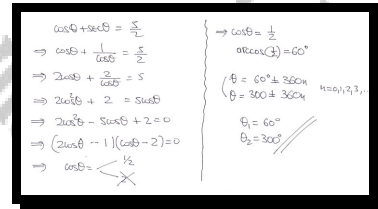 cosθ + secθ = 5/2
⇒ cosθ + 1/cosθ = 5/2
⇒ 2cosθ + 2/cosθ = 5
⇒ 2cos²θ + 2 = 5cosθ
⇒ 2cos²θ - 5cosθ + 2 = 0
⇒ (2cosθ - 1)(cosθ - 2) = 0
⇒ cosθ = 1/2
2
⇒ cosθ = 1/2
arccos(1/2) = 60°
θ = 60° ± 360n
θ = 300 ± 360n n=0,1,2,3,...
θ₁ = 60°
θ₂ = 300°